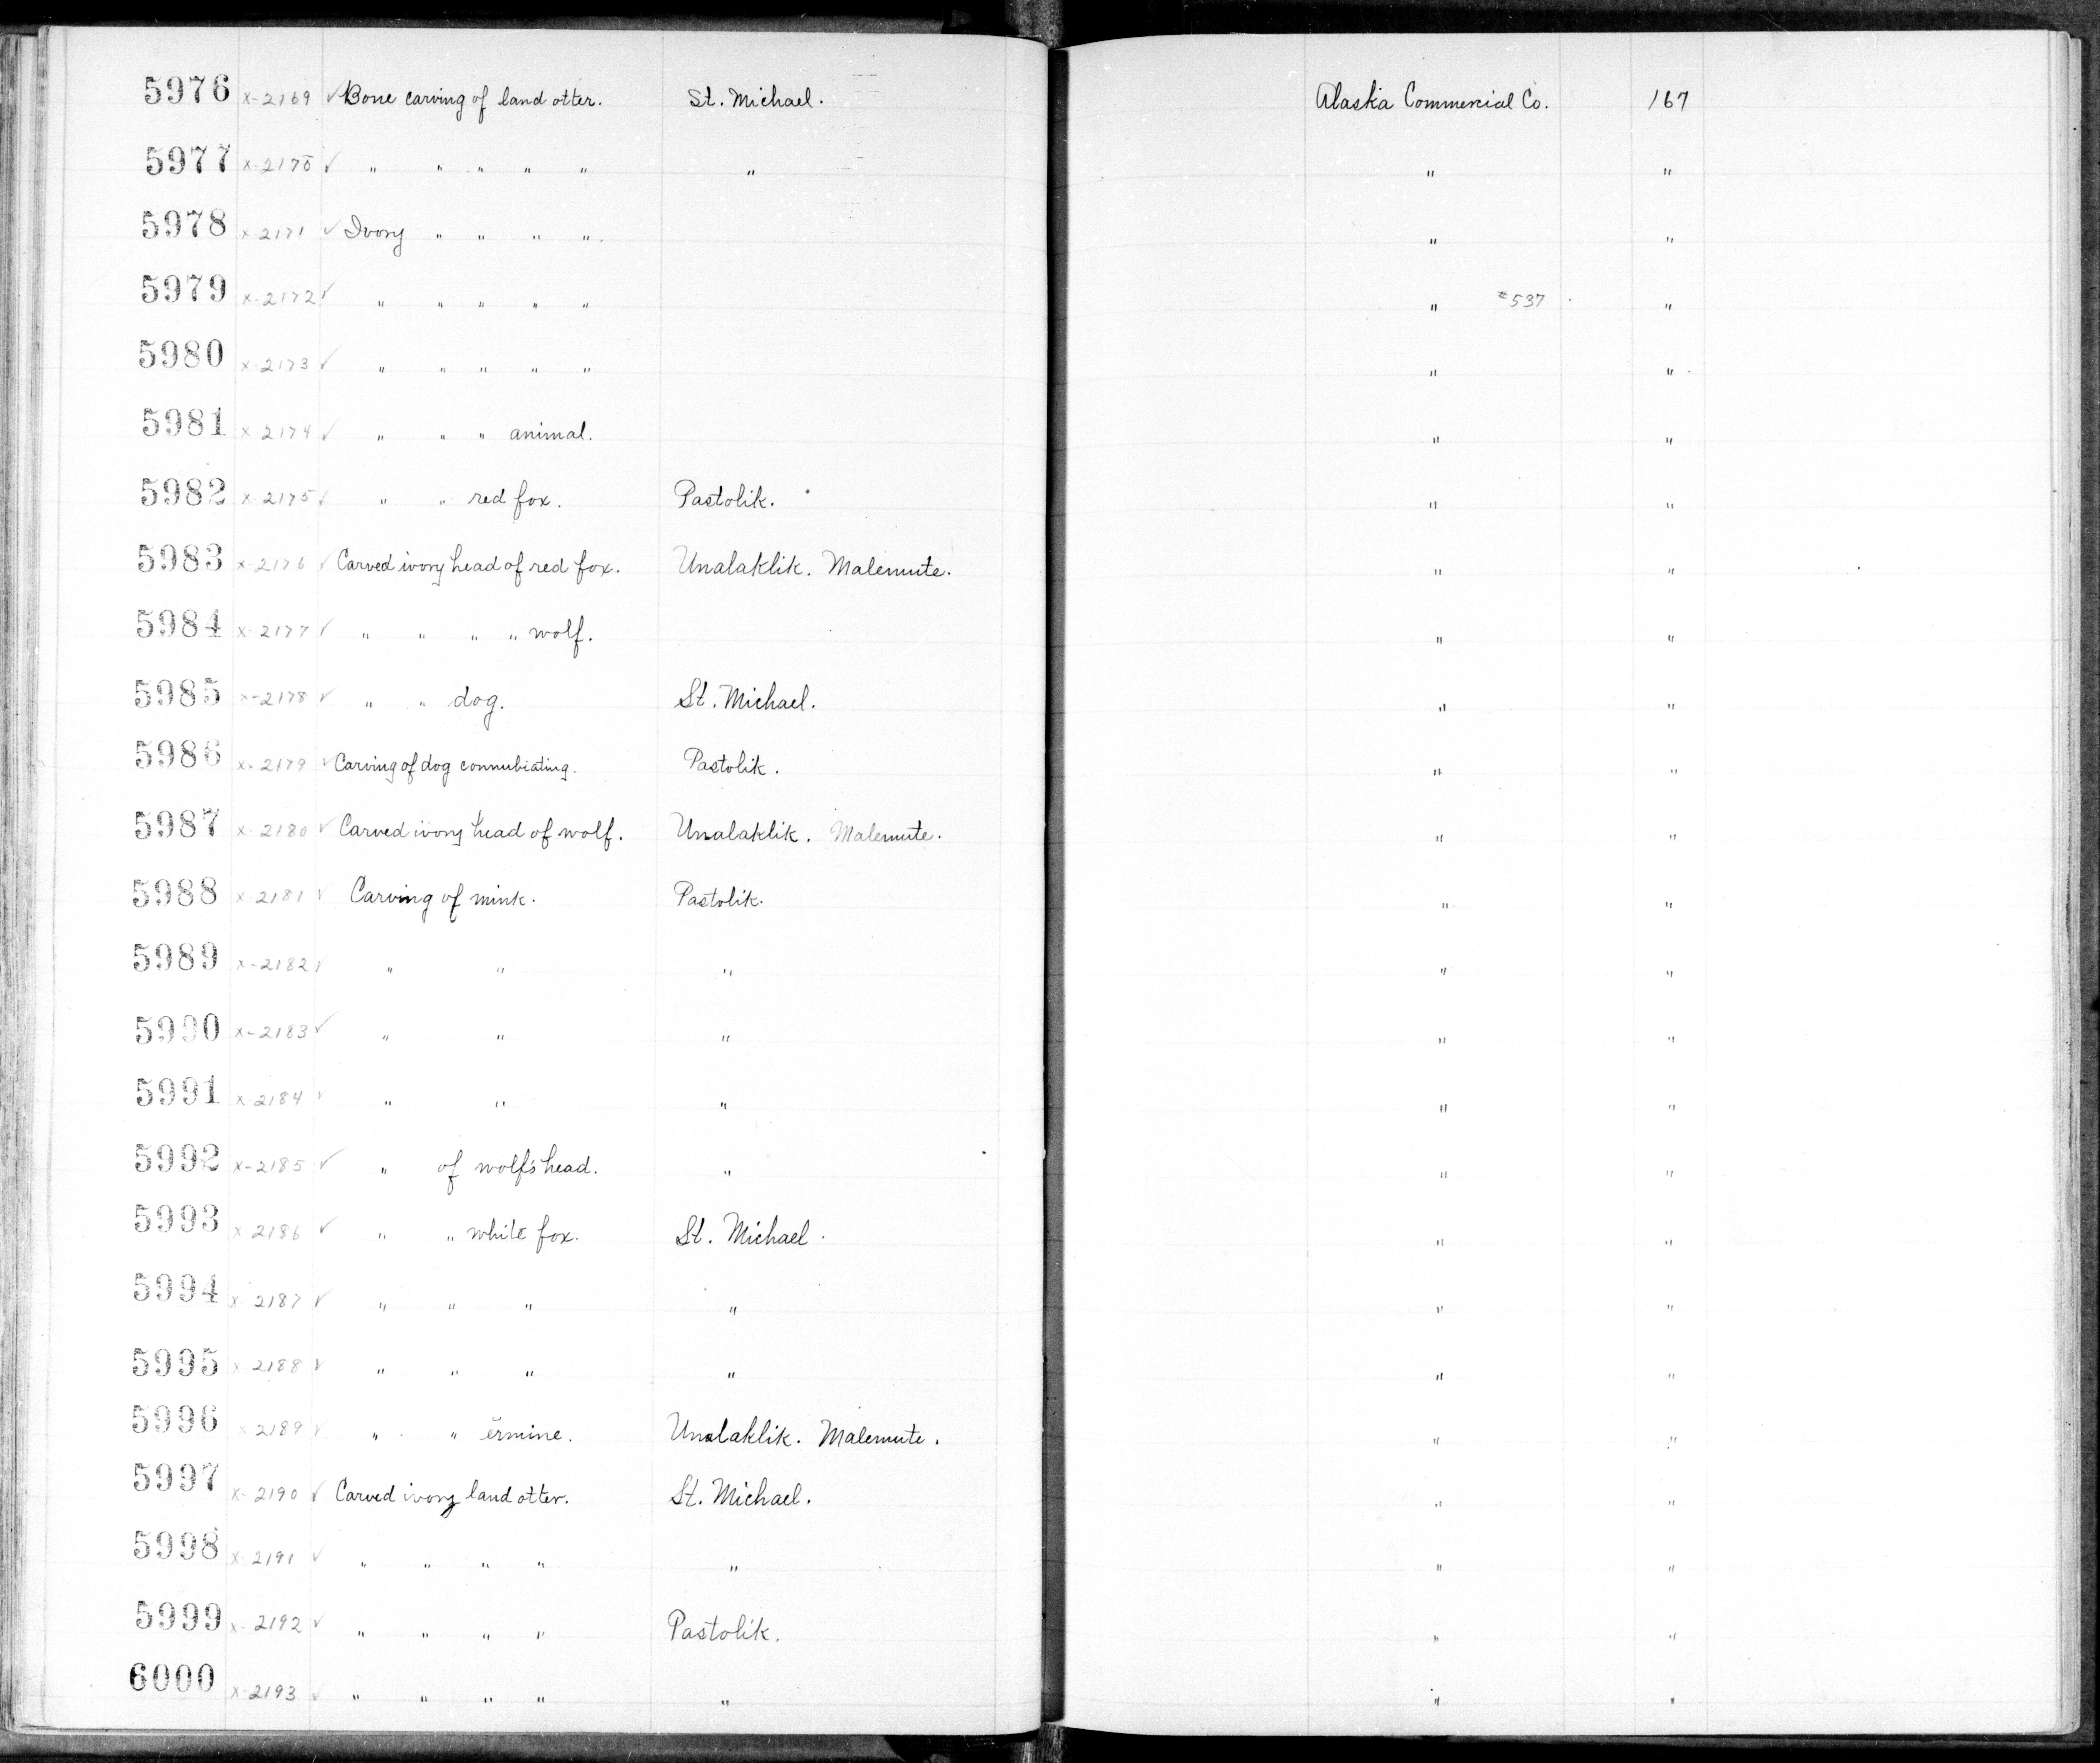 5976 x-2169 ✓ Bone carving of land otter. St. Michael. Alaska Commercial Co. 167
5977 x-2170 ✓ " " " " " " " "
5978 x-2171 ✓ Ivory " " " " " "
5979 x-2172 ✓ " " " " " " #537 "
5980 x-2173 ✓ " " " " " " "
5981 x-2174 ✓ " " " animal. " "
5982 x-2175 ✓ " " red fox. Pastolik. " "
5983 x-2176 ✓ Carved ivory head of red fox. Unalaklik. Malemute. " "
5984 x-2177 ✓ " " " " wolf. " "
5985 x-2178 ✓ " " dog. St. Michael. " "
5986 x-2179 ✓ Carving of dog connubiating. Pastolik. " "
5987 x-2180 ✓ Carved ivory head of wolf. Unalaklik. Malemute. " "
5988 x-2181 ✓ Carving of mink. Pastolik. " "
5989 x-2182 ✓ " " " " "
5990 x-2183 ✓ " " " " "
5991 x-2184 ✓ " " " " "
5992 x-2185 ✓ " of wolf's head. " " "
5993 x-2186 ✓ " " white fox. St. Michael. " "
5994 x-2187 ✓ " " " " " "
5995 x-2188 ✓ " " " " " "
5996 x-2189 ✓ " " ermine. Unalaklik. Malemute. " "
5997 x-2190 ✓ Carved ivory land otter. St. Michael. " "
5998 x-2191 ✓ " " " " " " "
5999 x-2192 ✓ " " " " Pastolik. " "
6000 x-2193 ✓ " " " " " " "